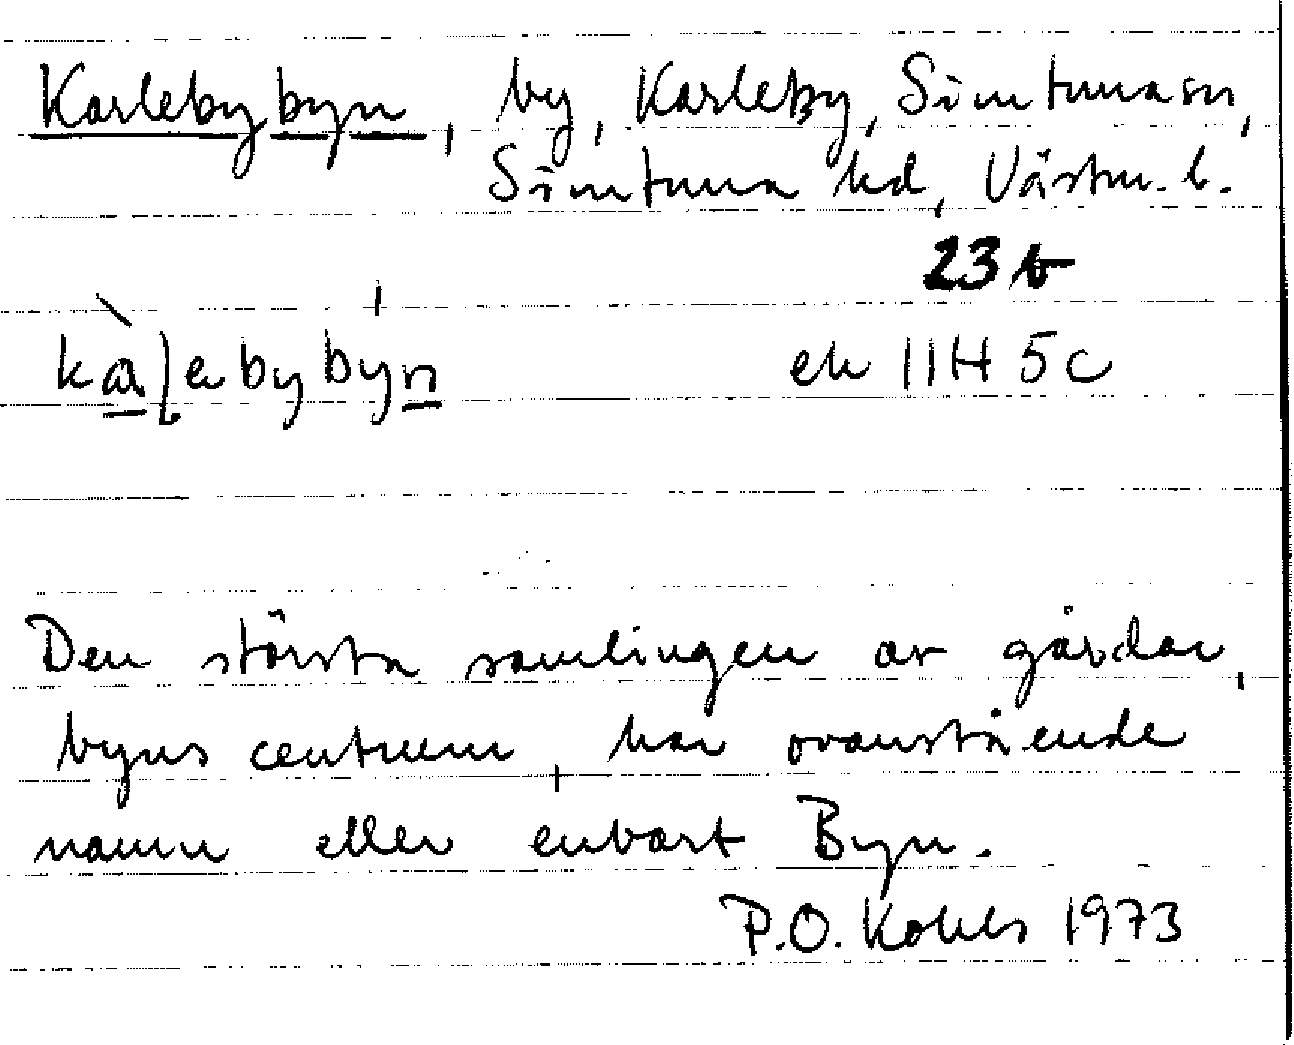 Karlebybyn, by, Karleby, Simtuna sn,
Simtuna hd, Västm. l.
23 b
kàɭebybýn ek 11H 5c
Den största samlingen av gårdar,
byns centrum, har ovanstående
namn eller enbart Byn.
P.O. 1973